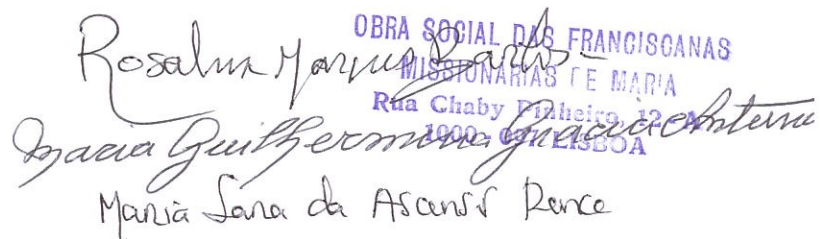 OBRA SOCIAL DAS FRANCISCANAS
MISSIONÁRIAS DE MARIA
Rua Chaby Pinheiro, 12-A
LISBOA
Rosaluz Marques
Maria Guilhermina Antunes
Maria da Ascensão